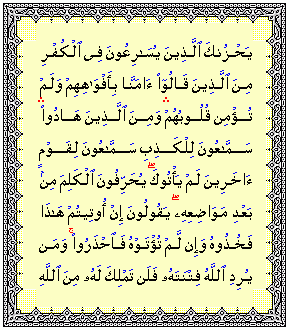 يَحْزُنكَ ٱلَّذِينَ يُسَـٰرِعُونَ فِى ٱلْكُفْرِ
مِنَ ٱلَّذِينَ قَالُوٓا۟ ءَامَنَّا بِأَفْوَٰهِهِمْ وَلَمْ
تُؤْمِن قُلُوبُهُمْ ۛ وَمِنَ ٱلَّذِينَ هَادُوا۟ ۛ
سَمَّـٰعُونَ لِلْكَذِبِ سَمَّـٰعُونَ لِقَوْمٍ
ءَاخَرِينَ لَمْ يَأْتُوكَ ۖ يُحَرِّفُونَ ٱلْكَلِمَ مِنۢ
بَعْدِ مَوَاضِعِهِۦ ۖ يَقُولُونَ إِنْ أُوتِيتُمْ هَـٰذَا
فَخُذُوهُ وَإِن لَّمْ تُؤْتَوْهُ فَٱحْذَرُوا۟ ۚ وَمَن
يُرِدِ ٱللَّهُ فِتْنَتَهُۥ فَلَن تَمْلِكَ لَهُۥ مِنَ ٱللَّهِ